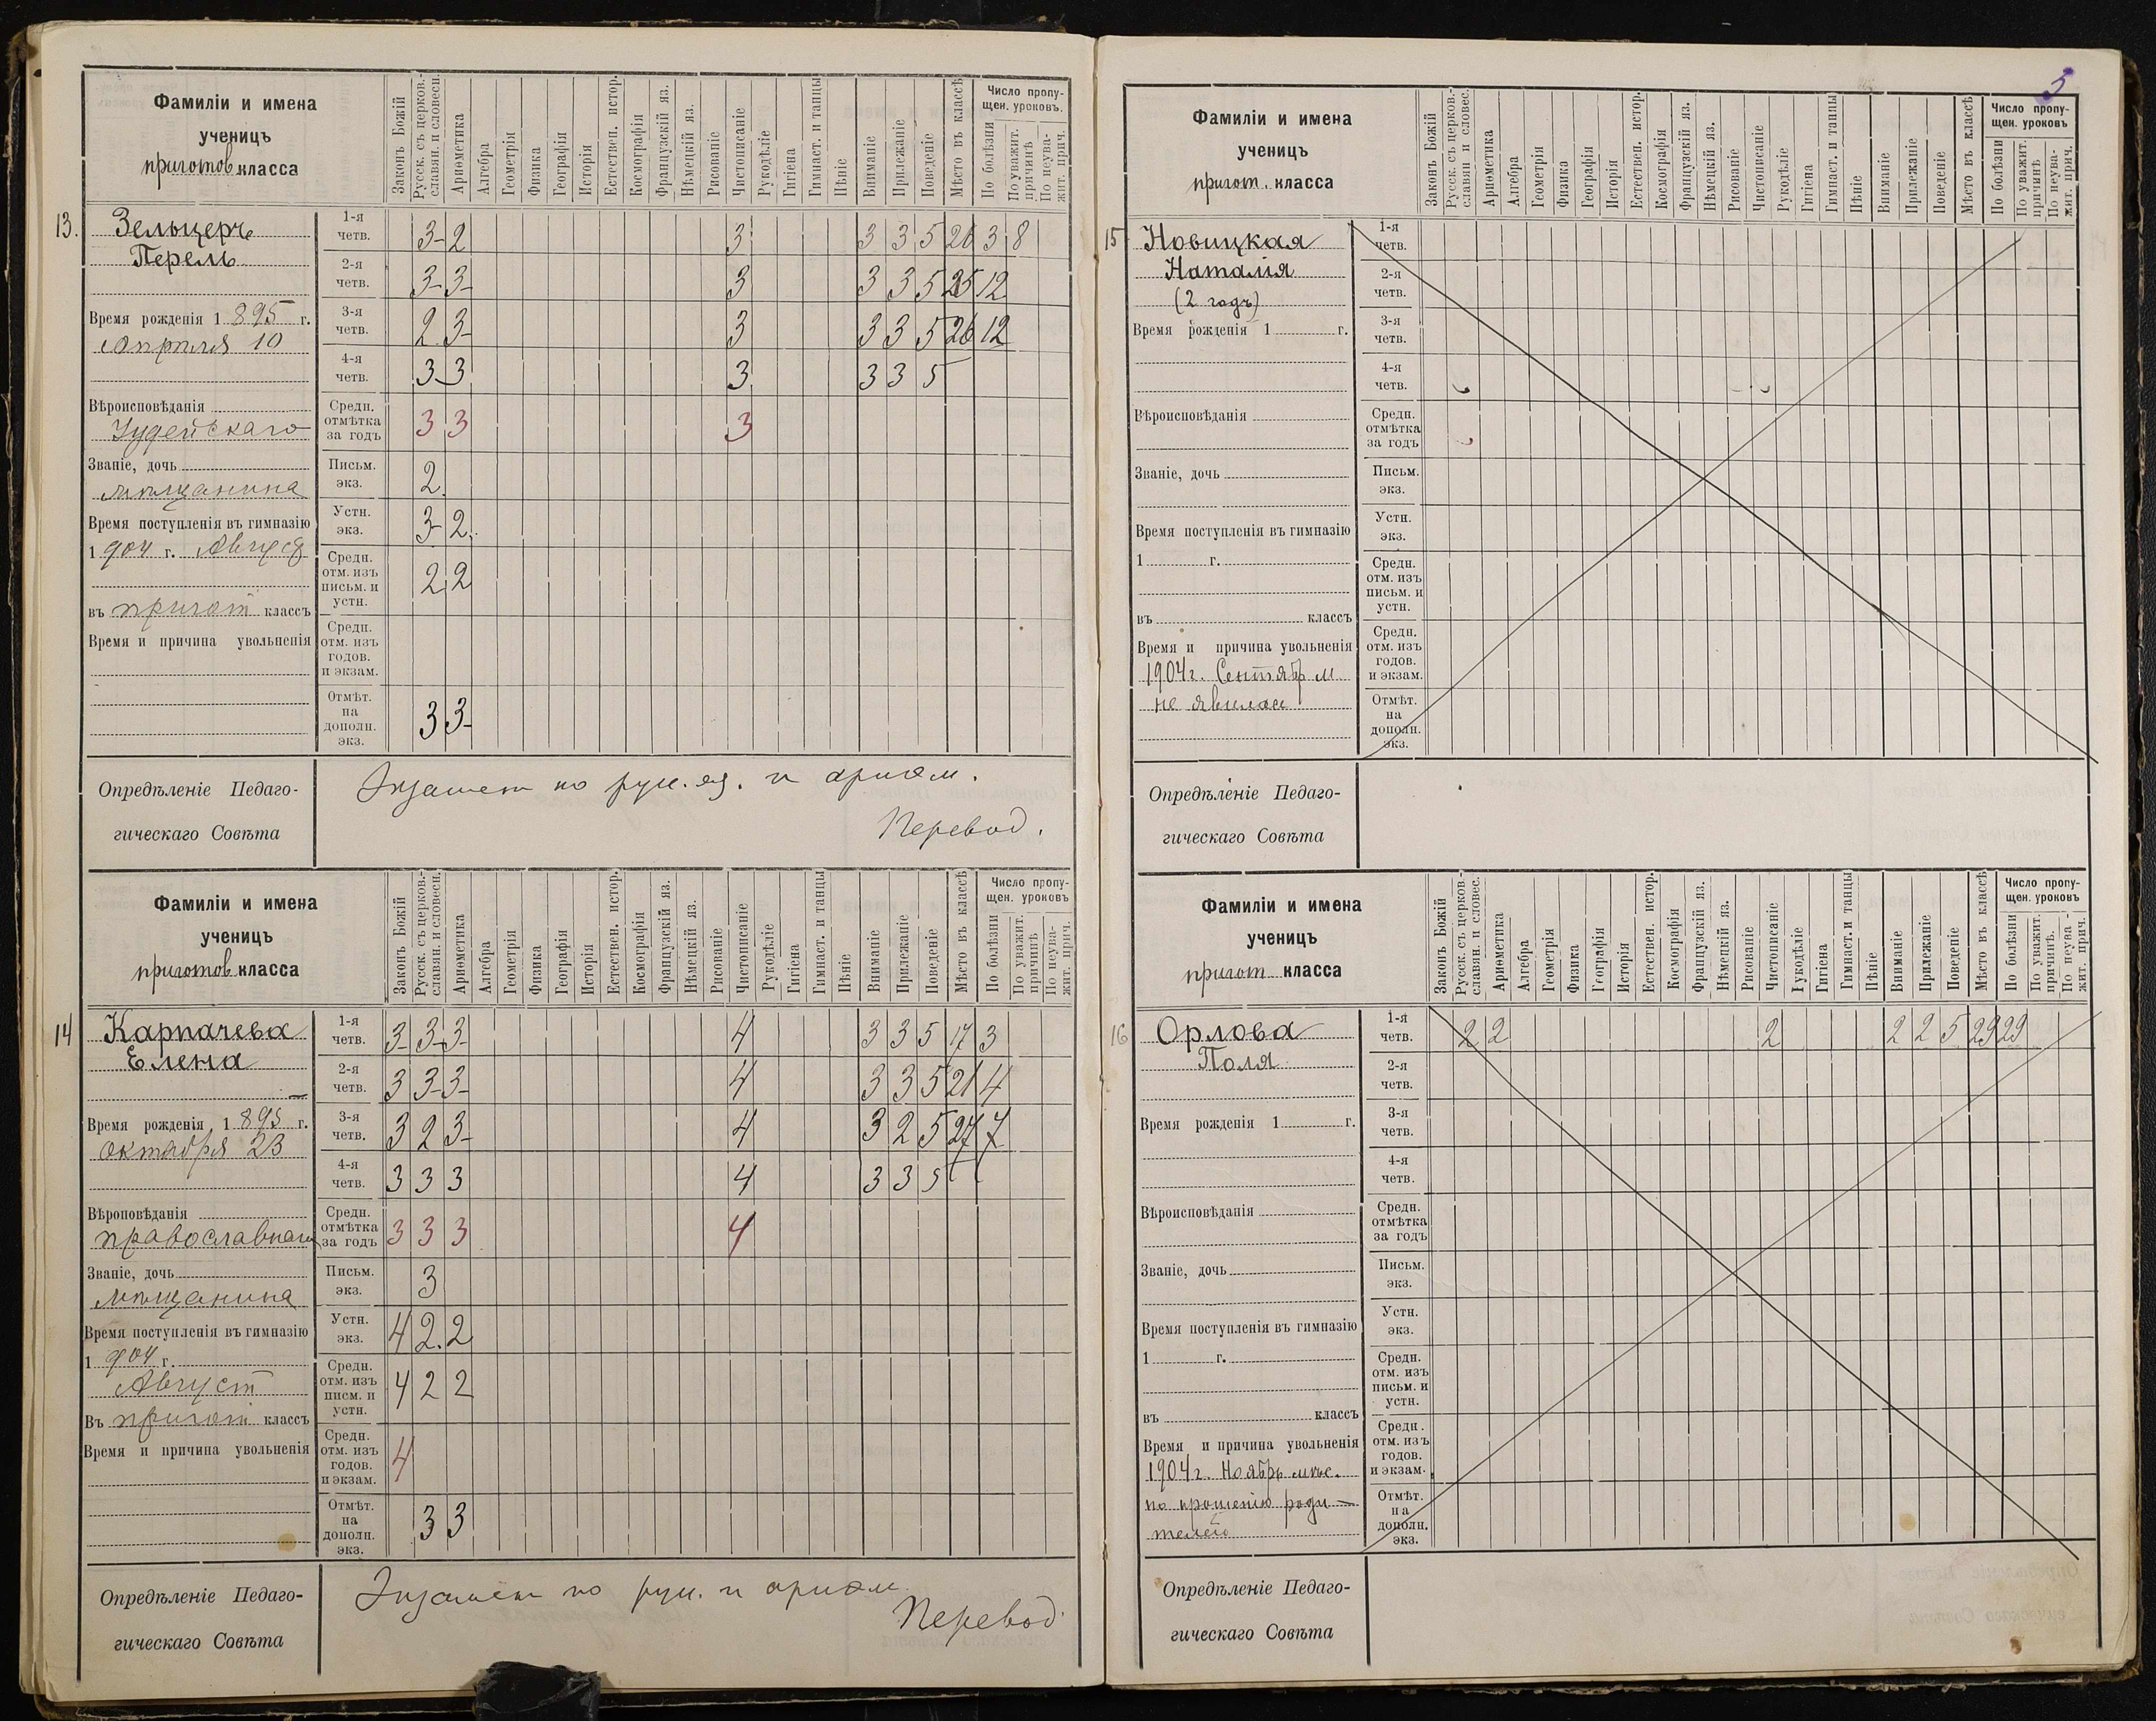 5
Фамиліи и имена
ученицъ
приготов. класса
Законъ Божій
Русск. съ церков.-
славян. и словесн.
Ариѳметика
Алгебра
Геометрія
Физика
Географія
Исторія
Естествен. истор.
Космографія
Французскій яз.
Нѣмецкій яз.
Рисованіе
Чистописаніе
Рукодѣліе
Гигіена
Гимнаст. и танцы
Пѣніе
Вниманіе
Прилежаніе
Поведеніе
Мѣсто въ классѣ
Число пропу-
щен. уроковъ.
По болѣзни
По уважит.
причинѣ
По неува-
жит. прич.
13. Зельцеръ
Перель
Время рожденія 1895 г.
Апрѣля 10
Вѣроисповѣданія
Іудейскаго
Званіе, дочь
мѣщанина
Время поступленія въ гимназію
1904 г. Август
въ пригот классъ
Время и причина увольненія
1-я четв. 3- 2 3 3 3 5 26 3 8
2-я четв. 3- 3- 3 3 3 5 25 12
3-я четв. 2 3- 3 3 3 5 26 12
4-я четв. 3- 3 3 3 3 5
Средн. отмѣтка за годъ 3 3 3
Письм. экз. 2
Устн. экз. 3- 2
Средн. отм. изъ письм. и устн. 2 2
Средн. отм. изъ годов. и экзам.
Отмѣт. на дополн. экз. 3 3-
Опредѣленіе Педаго-
гическаго Совѣта
Экзамен по рус. яз. и ариѳм.
Перевод.
Фамиліи и имена
ученицъ
приготов. класса
Законъ Божій
Русск. съ церков.-
славян. и словесн.
Ариѳметика
Алгебра
Геометрія
Физика
Географія
Исторія
Естествен. истор.
Космографія
Французскій яз.
Нѣмецкій яз.
Рисованіе
Чистописаніе
Рукодѣліе
Гигіена
Гимнаст. и танцы
Пѣніе
Вниманіе
Прилежаніе
Поведеніе
Мѣсто въ классѣ
Число пропу-
щен. уроковъ
По болѣзни
По уважит.
причинѣ
По неува-
жит. прич.
14 Карпачева
Елена
Время рожденія 1895 г.
Октября 23
Вѣроповѣданія
православнаго
Званіе, дочь
мѣщанина
Время поступленія въ гимназію
1904 г.
Август
Въ пригот классъ
Время и причина увольненія
1-я четв. 3- 3- 3- 4 3 3 5 17 3
2-я четв. 3 3- 3- 4 3 3 5 21 4
3-я четв. 3 2 3- 4 3 2 5 27 7
4-я четв. 3 3 3 4 3 3 5
Средн. отмѣтка за годъ 3 3 3 4
Письм. экз. 3
Устн. экз. 4 2. 2
Средн. отм. изъ писм. и устн. 4 2 2
Средн. отм. изъ годов. и экзам. 4
Отмѣт. на дополн. экз. 3 3
Опредѣленіе Педаго-
гическаго Совѣта
Экзамен по рус. и ариѳм
Перевод.
Фамиліи и имена
ученицъ
пригот. класса
Законъ Божій
Русск. съ церков.-
славян и словес.
Ариѳметика
Алгебра
Геометрія
Физика
Географія
Исторія
Естествен. истор.
Космографія
Французскій яз.
Нѣмецкій яз.
Рисованіе
Чистописаніе
Рукодѣліе
Гигіена
Гимнаст. и танцы
Пѣніе
Вниманіе
Прилежаніе
Поведеніе
Мѣсто въ классѣ
Число пропу-
щен. уроковъ
По болѣзни
По уважит.
причинѣ
По неува-
жит. прич.
15 Новицкая
Наталія
(2 годъ)
Время рожденія 1 г.
Вѣроисповѣданія
Званіе, дочь
Время поступленія въ гимназію
1 г.
въ классъ
Время и причина увольненія
1904 г. Сентябр м
не явилась
1-я четв.
2-я четв.
3-я четв.
4-я четв.
Средн. отмѣтка за годъ
Письм. экз.
Устн. экз.
Средн. отм. изъ письм. и устн.
Средн. отм. изъ годов. и экзам.
Отмѣт. на дополн. экз.
Опредѣленіе Педаго-
гическаго Совѣта
Фамиліи и имена
ученицъ
пригот класса
Законъ Божій
Русск. съ церков.-
славян. и словес.
Ариѳметика
Алгебра
Геометрія
Физика
Географія
Исторія
Естествен. истор.
Космографія
Французскій яз.
Нѣмецкій яз.
Рисованіе
Чистописаніе
Рукодѣліе
Гигіена
Гимнаст. и танцы
Пѣніе
Вниманіе
Прилежаніе
Поведеніе
Мѣсто въ классѣ
Число пропу-
щен. уроковъ
По болѣзни
По уважит.
причинѣ.
По неува-
жит. прич.
16 Орлова
Поля
Время рожденія 1 г.
Вѣроисповѣданія
Званіе, дочь
Время поступленія въ гимназію
1 г.
въ классъ
Время и причина увольненія
1904 г. Ноябрь мѣс.
по прошенію роди-
телей
1-я четв. 2 2 2 2 2 5 29 29
2-я четв.
3-я четв.
4-я четв.
Средн. отмѣтка за годъ
Письм. экз.
Устн. экз.
Средн. отм. изъ письм. и устн.
Средн. отм. изъ годов. и экзам.
Отмѣт. на дополн. экз.
Опредѣленіе Педаго-
гическаго Совѣта